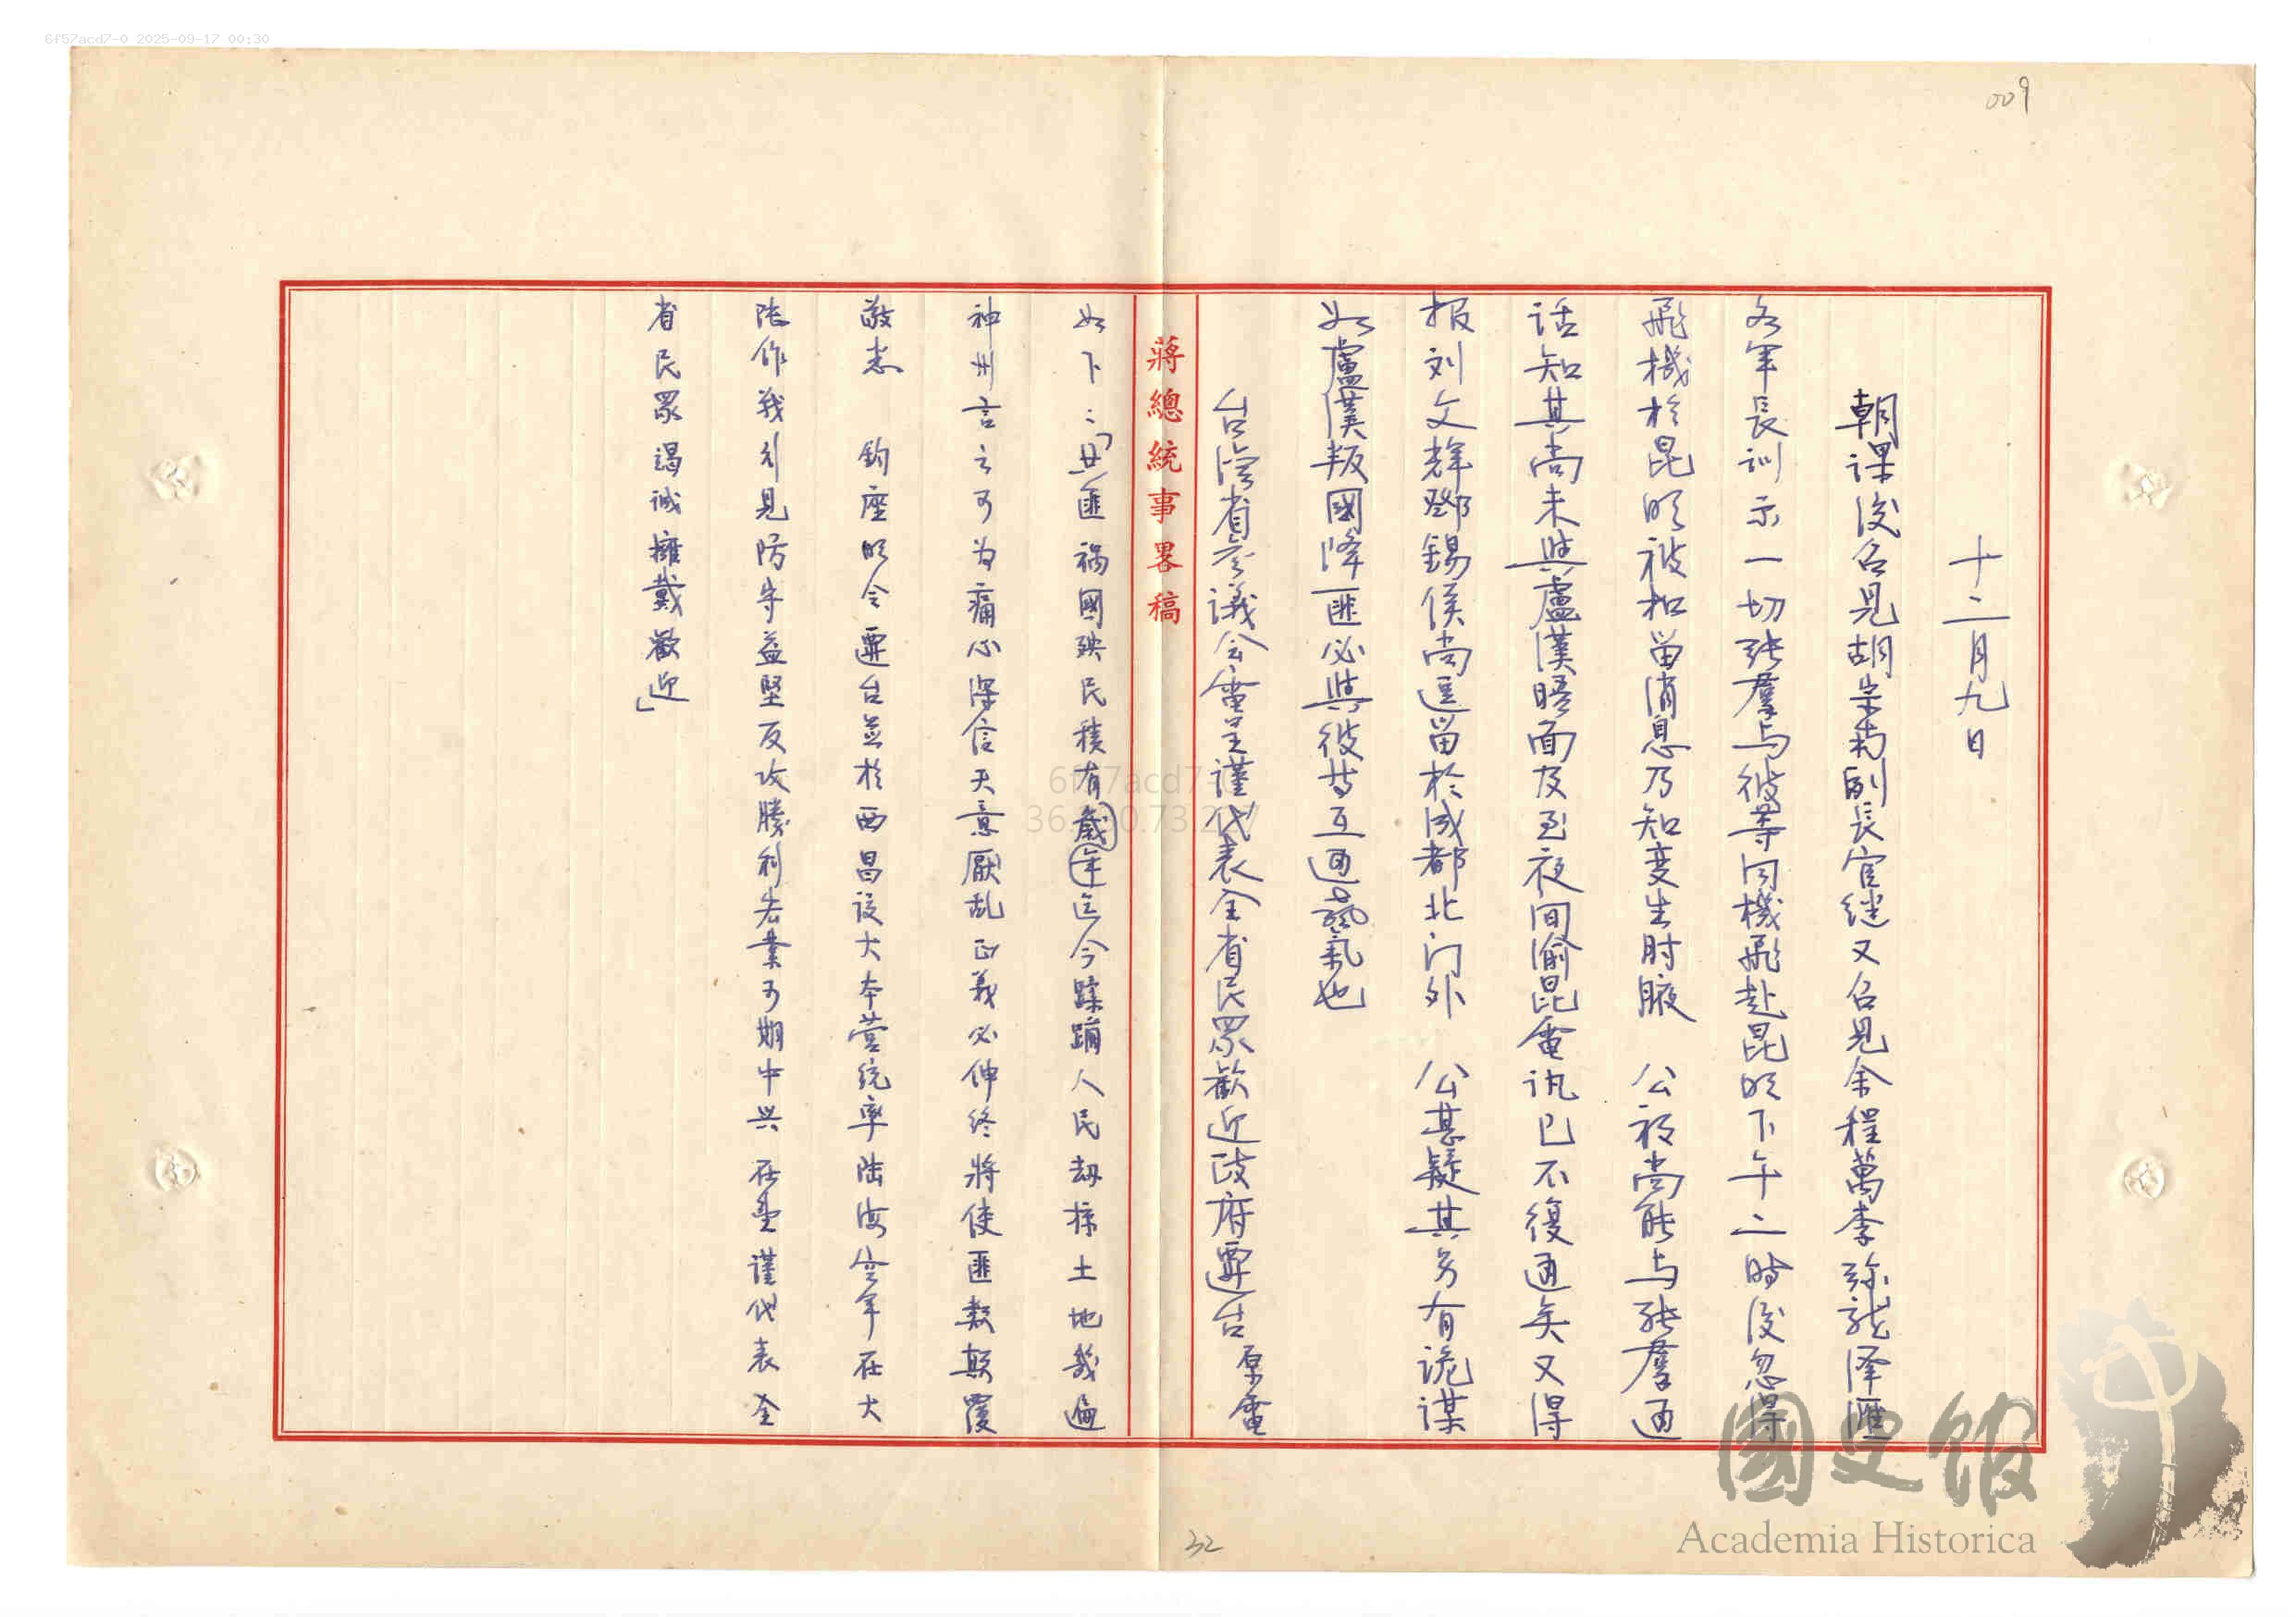 6f57acd7-0 2025-09-17 00:30
009
十二月九日
朝課後召見胡宗南副長官繼又召見余程萬李弥龍澤滙
各軍長訓示一切张羣与彼等同機飛赴昆明下午二時後忽得
飛機於昆明被扣留消息乃知变生肘腋　公初尚能与张羣通
話知其尚未與盧漢晤面及至夜间渝昆電讯已不復通矣又得
报刘文輝鄧錫侯尚逗留於成都北门外　公甚疑其另有詭谋
如盧漢叛國降匪必與彼等互通聲氣也
台灣省参議会電呈謹代表全省民眾歡迎政府遷台原電
蔣總統事畧稿
如下：「共匪禍國殃民積有歲年迄今蹂躪人民劫掠土地幾遍
神州言之可为痛心深信天意厭乱正義必伸终將使匪類颠覆
敬悉　鈞座明令遷台並於西昌设大本营统率陆海空军在大
陆作戰引見防守益堅反攻勝利在業可期中兴在望謹代表全
省民眾竭诚擁戴歡迎」
32
6f57acd7-
國史館
Academia Historica